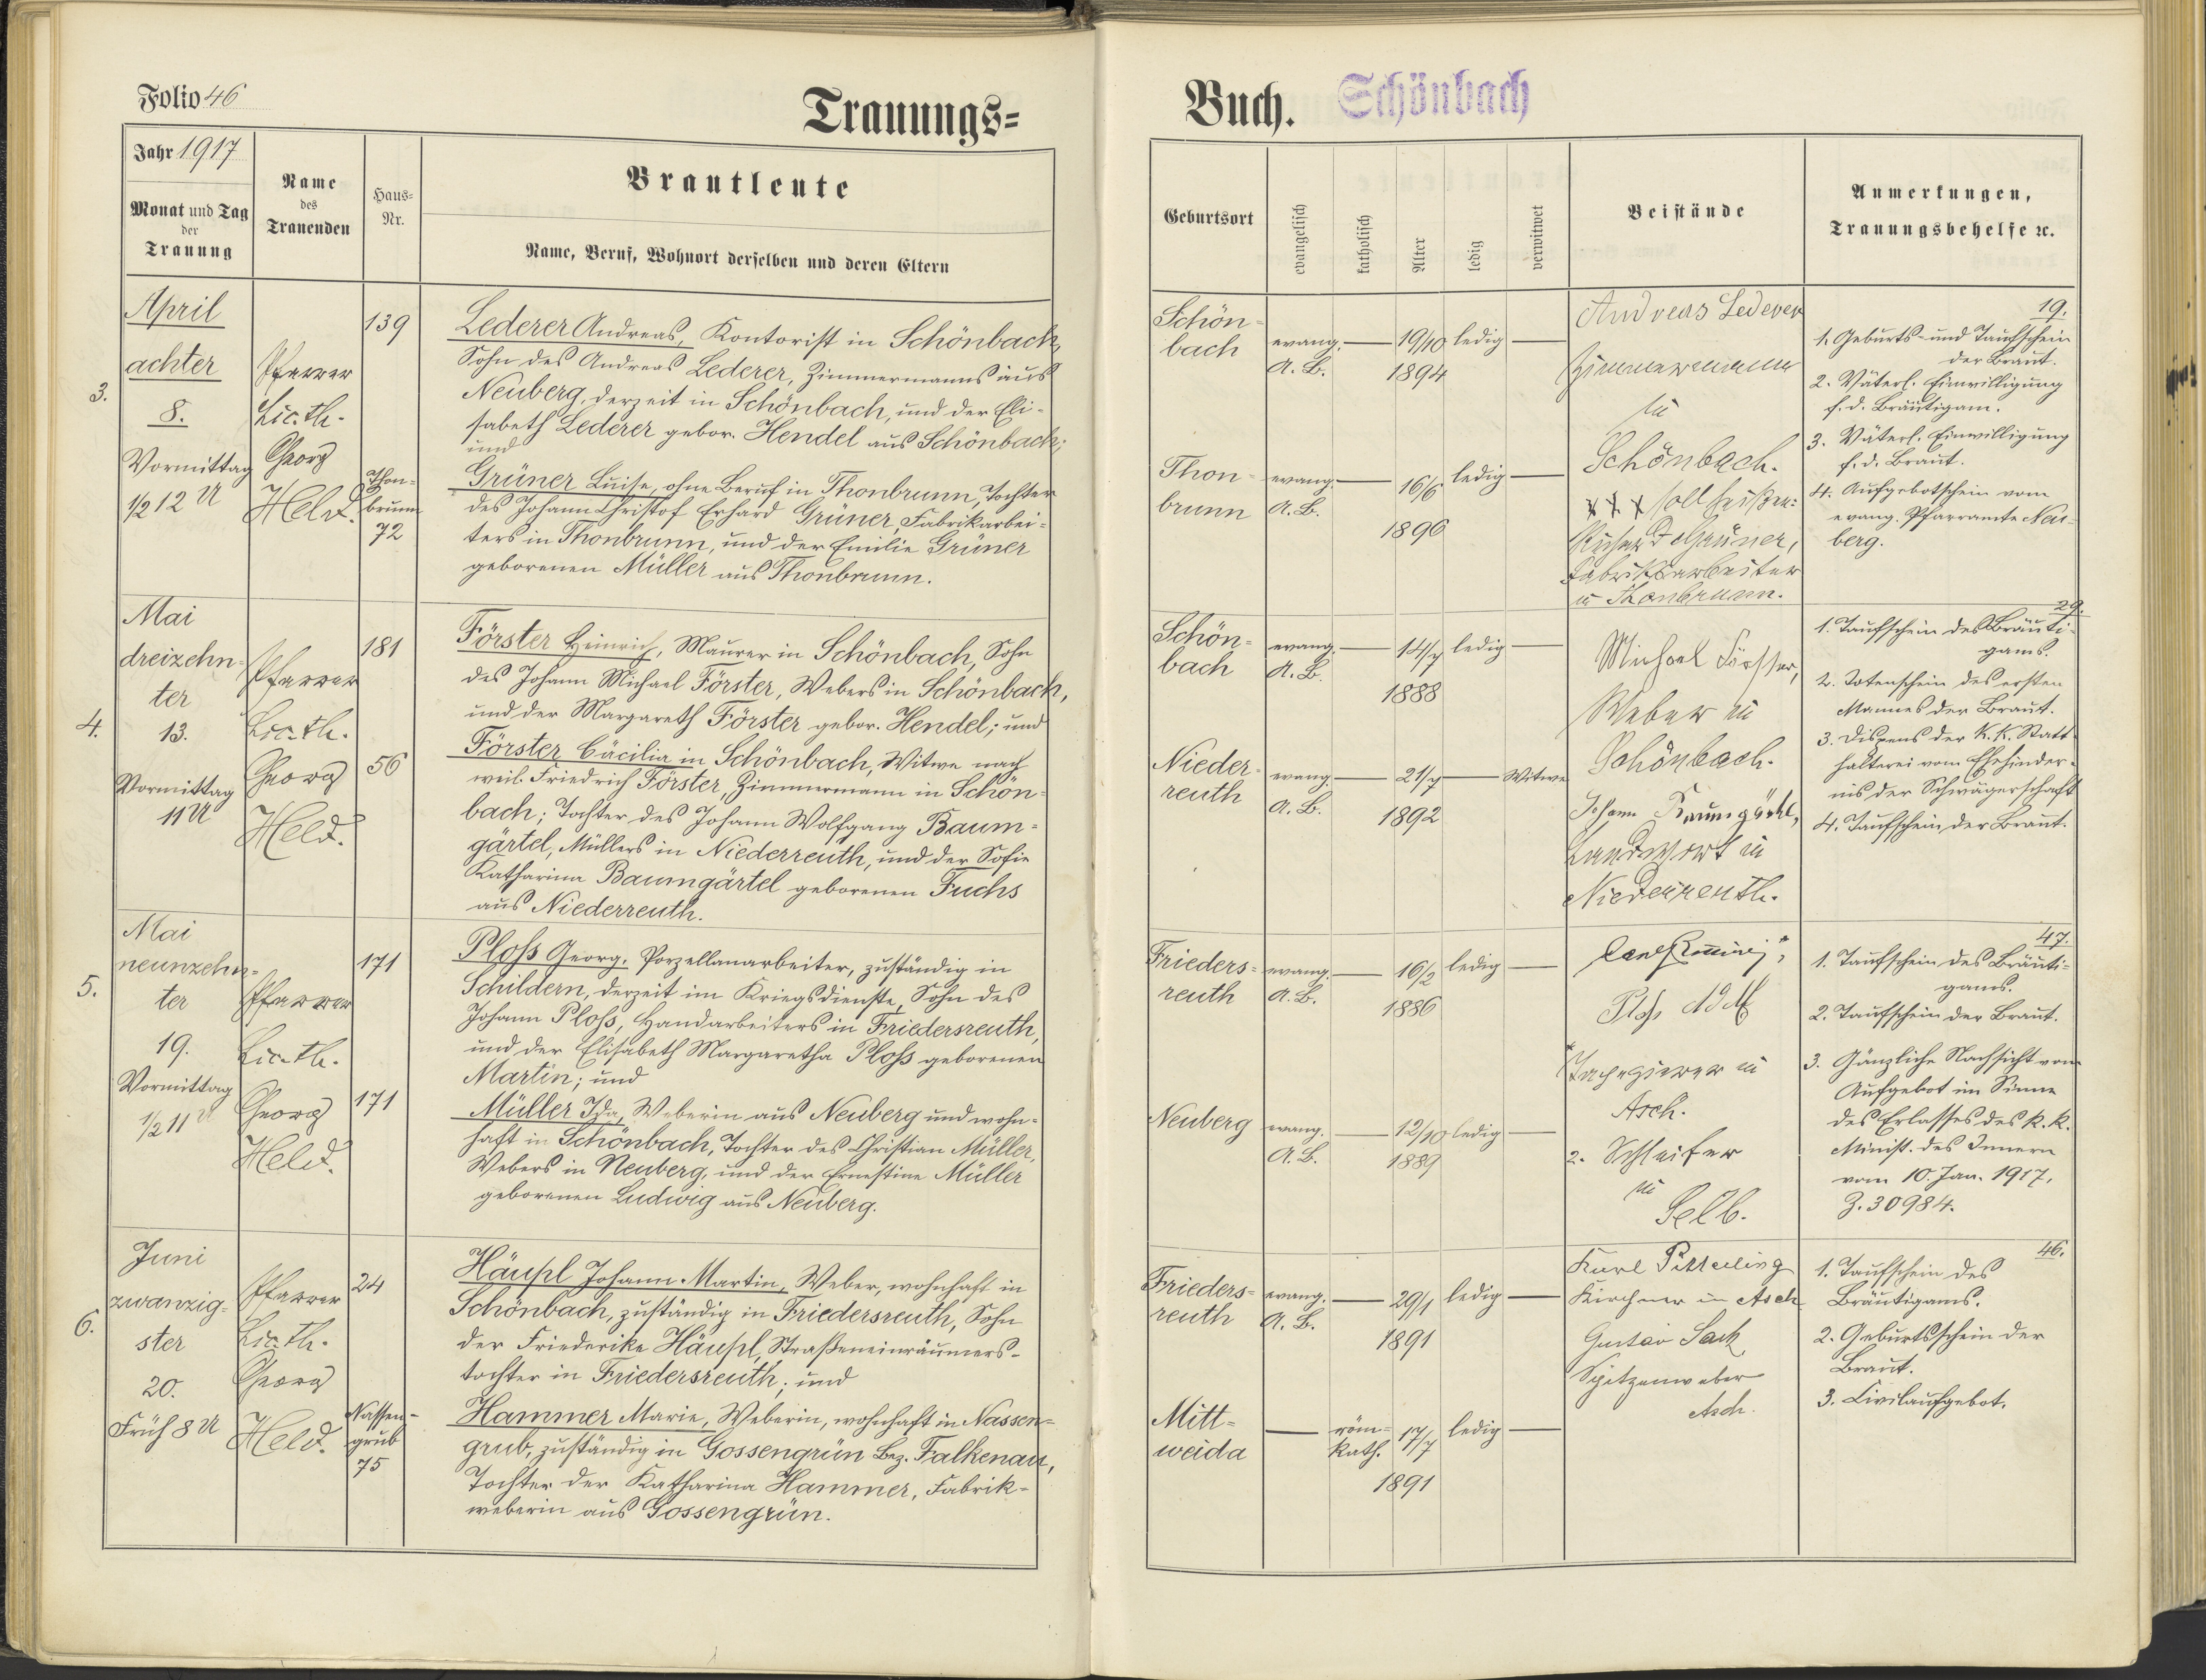 Folio 46
Trauungs=
Jahr 1917
Monat und Tag
der
Trauung
Name
des
Trauenden
Haus=
Nr.
Brautleute
Name, Beruf, Wohnort derselben und deren Eltern
3.
April
achter
8.
Vormittag
1/2 12 U
Pfarrer
Lic. th.
Georg
Held.
139
Thon-
brunn
72
Lederer Andreas, Kontorist in Schönbach,
Sohn des Andreas Lederer, Zimmermanns aus
Neuberg, derzeit in Schönbach, und der Eli-
sabeth Lederer gebor. Hendel aus Schönbach;
und
Grüner Luise, ohne Beruf in Thonbrunn, Tochter
des Johann Christof Erhard Grüner, Fabrikarbei-
ters in Thonbrunn, und der Emilie Grüner
geborenen Müller aus Thonbrunn.
4.
Mai
dreizehn-
ter
13.
Vormittag
11 U
Pfarrer
Lic. th.
Georg
Held.
181
56
Förster Heinrich, Maurer in Schönbach, Sohn
des Johann Michael Förster, Webers in Schönbach,
und der Margareth Förster gebor. Hendel; und
Förster Cäcilia in Schönbach, Witwe nach
weil. Friedrich Förster, Zimmermann in Schön-
bach; Tochter des Johann Wolfgang Baum-
gärtel, Müllers in Niederreuth, und der Sofie
Katharina Baumgärtel geborenen Fuchs
aus Niederreuth.
5.
Mai
neunzehn-
ter
19.
Vormittag
1/2 11 U
Pfarrer
Lic. th.
Georg
Held.
171
171
Ploß Georg, Porzellanarbeiter, zuständig in
Schildern, derzeit im Kriegsdienste, Sohn des
Johann Ploß, Handarbeiters in Friedersreuth,
und der Elisabeth Margaretha Ploß geborenen
Martin; und
Müller Ida, Weberin aus Neuberg und wohn-
haft in Schönbach, Tochter des Christian Müller,
Webers in Neuberg, und der Ernestine Müller
geborenen Ludwig aus Neuberg.
6.
Juni
zwanzig-
ster
20.
Früh 8 U
Pfarrer
Lic. th.
Georg
Held.
24
Nassen-
grub
75
Häupl Johann Martin, Weber, wohnhaft in
Schönbach, zuständig in Friedersreuth, Sohn
der Friederike Häupl, Straßeneinräumers-
tochter in Friedersreuth; und
Hammer Marie, Weberin, wohnhaft in Nassen-
grub, zuständig in Gossengrün Bez. Falkenau,
Tochter der Katharina Hammer, Fabrik-
weberin aus Gossengrün.
Buch.
Schönbach
Geburtsort
evangelisch
katholisch
Alter
ledig
verwitwet
Beistände
Anmerkungen,
Trauungsbehelfe ec.
Schön-
bach
evang.
A. B.
19/10
1894
ledig
Thon-
brunn
evang.
A. B.
16/6
1896
ledig
Andreas Lederer
Zimmermann
in
Schönbach.
x x x soll heißen:
Richard Grüner,
Fabriksarbeiter
in Thonbrunn.
19.
1. Geburts- und Taufschein
der Braut.
2. Väterl. Einwilligung
f. d. Bräutigam.
3. Väterl. Einwilligung
f. d. Braut.
4. Aufgebotschein vom
evang. Pfarramte Neu-
berg.
Schön-
bach
evang.
A. B.
14/7
1888
ledig
Nieder-
reuth
evang.
A. B.
21/7
1892
Witwe
Michael Förster,
Weber in
Schönbach.
Johann Baumgärtel,
Landwirt in
Niederreuth.
29.
1. Taufschein des Bräuti-
gams.
2. Totenschein des ersten
Mannes der Braut.
3. Dispens der k. k. Statt-
halterei vom Ehehinder-
nis der Schwägerschaft
4. Taufschein der Braut.
Frieders-
reuth
evang.
A. B.
16/2
1886
ledig
Neuberg
evang.
A. B.
12/10
1889
ledig
Ploß Adolf
in
Asch.
2. Schleifer
in
Selb.
47.
1. Taufschein des Bräuti-
gams.
2. Taufschein der Braut.
3. Gänzliche Nachsicht vom
Aufgebot im Sinne
des Erlasses des k. k.
Minist. des Innern
vom 10. Jan. 1917,
Z. 30984.
Frieders-
reuth
evang.
A. B.
29/1
1891
ledig
Mitt-
weida
röm-
kath.
17/7
1891
ledig
Karl Pitterling
Kirchner in Asch
Gustav Sack
Spitzenweber
Asch.
46.
1. Taufschein des
Bräutigams.
2. Geburtsschein der
Braut.
3. Civilaufgebot.